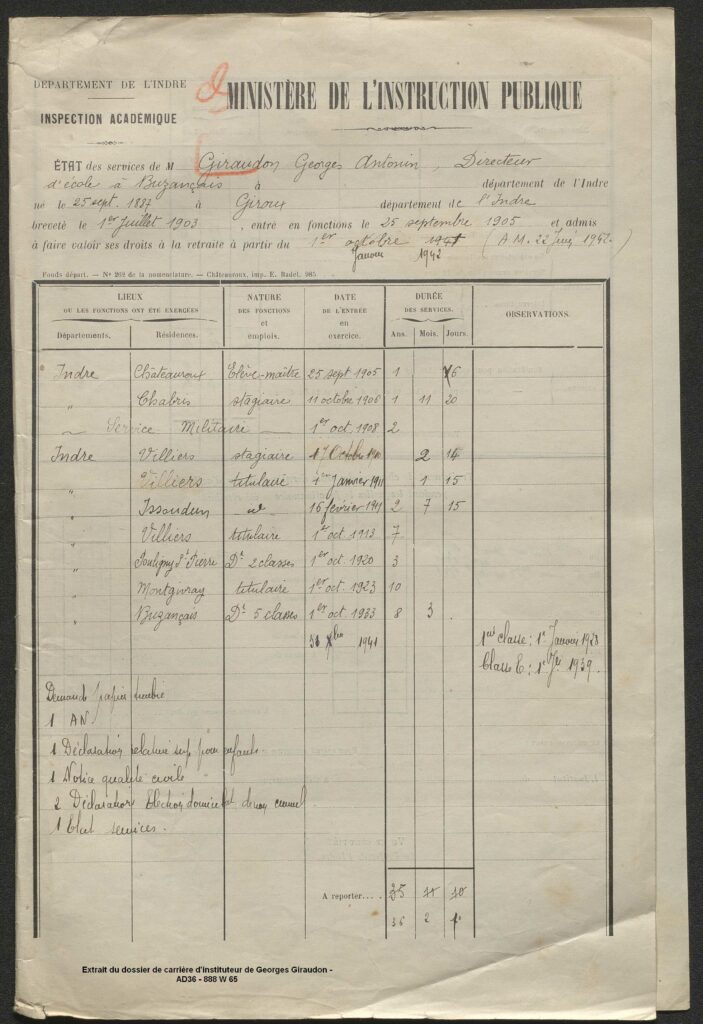 DÉPARTEMENT DE L'INDRE
INSPECTION ACADÉMIQUE
MINISTÈRE DE L'INSTRUCTION PUBLIQUE
ÉTAT des services de M Giraudon Georges Antonin, Directeur
d'école à Buzançais à département de l'Indre
né le 25 sept. 1887 à Giroux département de l'Indre
breveté le 1er Juillet 1903, entré en fonctions le 25 septembre 1905 et admis
à faire valoir ses droits à la retraite à partir du 1er octobre 1941 (A.M. 22 1942.)
Janvier 1942
Fonds départ. — Nº 202 de la nomenclature. — Châteauroux, imp. E. Badel, 985.
LIEUX
OU LES FONCTIONS ONT ÉTÉ EXERCÉES
Départements. Résidences.
NATURE
DES FONCTIONS
et
emplois.
DATE
DE L'ENTRÉE
en
exercice.
DURÉE
DES SERVICES.
Ans. Mois. Jours.
OBSERVATIONS.
Indre Châteauroux Elève-maître 25 sept 1905 1 6
" Chabris stagiaire 11 octobre 1906 1 11 20
— Service Militaire — 1er oct. 1908 2
Indre Villiers stagiaire 17 Octobre 2 14
" Villiers titulaire 1er Janvier 1911 1 15
" Issoudun id 16 février 1911 2 7 15
" Villiers titulaire 1er oct 1913 7
" Pouligny St Pierre Dr 2 classes 1er oct. 1920 3
" Montgivray titulaire 1er oct. 1923 10
" Buzançais Dr 5 classes 1er oct. 1933 8 3 .
31 Xbre 1941
1ère classe : 1er Janvier 1928
Classe E : 1939.
Demande papier timbré
1 AN
1 Déclaration relative sup. pour enfants.
1 Notice qualité civile
2 Déclarations Election domicile et de non cumul
1 Etat services.
A reporter.... 35 11 10
36 2
Extrait du dossier de carrière d'instituteur de Georges Giraudon -
AD36 - 888 W 65